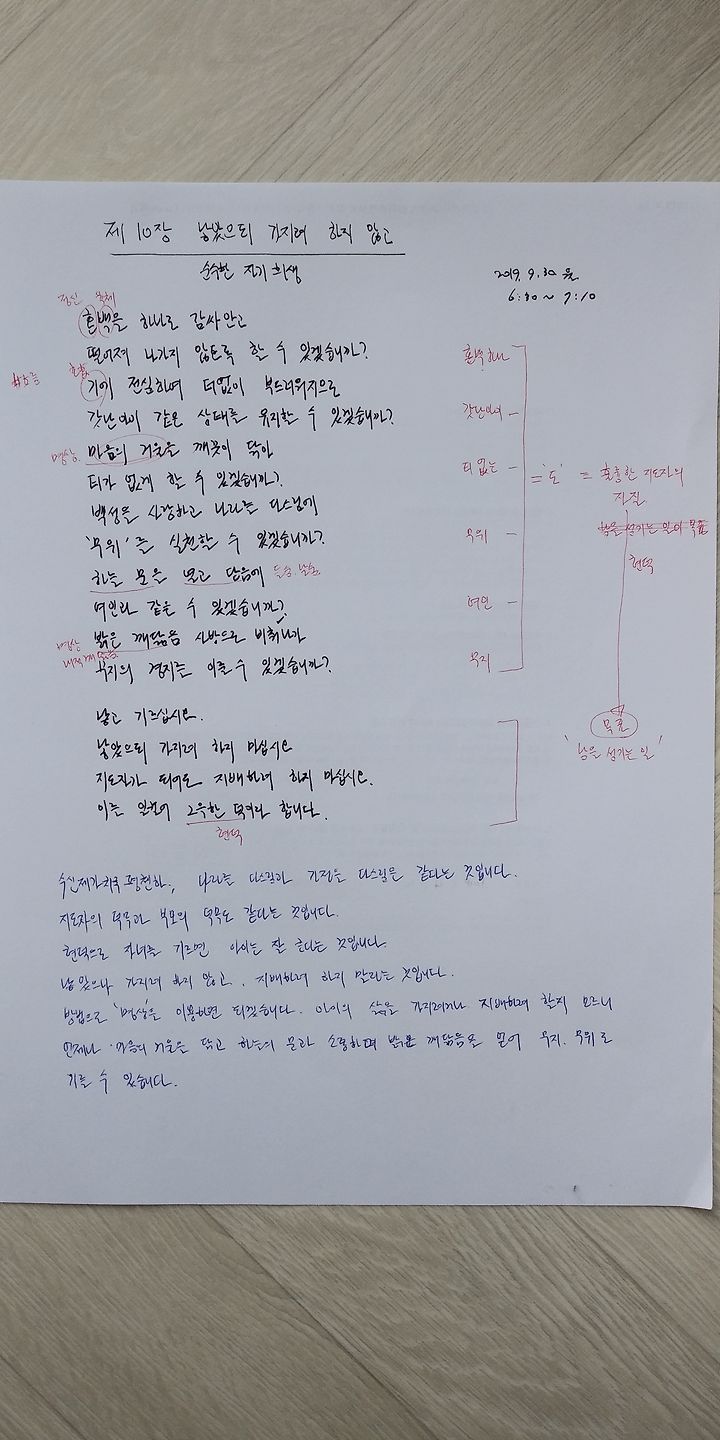 제 10장 낳았으되 가지려 하지 않고
순수한 자기 희생
2019. 9. 30 월
6:30 ~ 7:10
정신 육체
혼백을 하나로 감싸안고
떨어져 나가지 않도록 할 수 있겠습니까?
호흡
기에 전심하여 더없이 부드러워지므로
갓난아이 같은 상태를 유지할 수 있겠습니까?
명상
마음의 거울을 깨끗이 닦아
티가 없게 할 수 있겠습니까?
백성을 사랑하고 나라를 다스림에
'무위'를 실천할 수 있겠습니까?
하늘 문을 열고 닫음에 들숨, 날숨
여인과 같을 수 있겠습니까?
명상
내적 깨달음
밝은 깨달음 사방으로 비춰나가
무지의 경지를 이룰 수 있겠습니까?
혼백 하나
갓난아이
티 없는
무위
여인
무지
= '도' = 훌륭한 지도자의
자질
남을 섬기는 일이 목표
현덕
목표
'남을 섬기는 일'
낳고 기르십시오.
낳았으되 가지려 하지 마십시오
지도자가 되어도 지배하려 하지 마십시오.
이를 일컬어 그윽한 덕이라 합니다.
현덕
수신제가치국평천하, 나라를 다스림과 가정을 다스림은 같다는 것입니다.
지도자의 덕목과 부모의 덕목도 같다는 것입니다.
현덕으로 자녀를 기르면 아이는 잘 큰다는 것입니다
낳았으나 가지려 하지 않고, 지배하려 하지 말라는 것입니다.
방법으로 '명상'을 이용하면 되겠습니다. 아이의 삶을 가지려거나 지배하려 할지 모르니
언제나 마음의 거울을 닦고 하늘의 문과 소통하며 밝은 깨달음을 얻어 무지, 무위로
기를 수 있습니다.